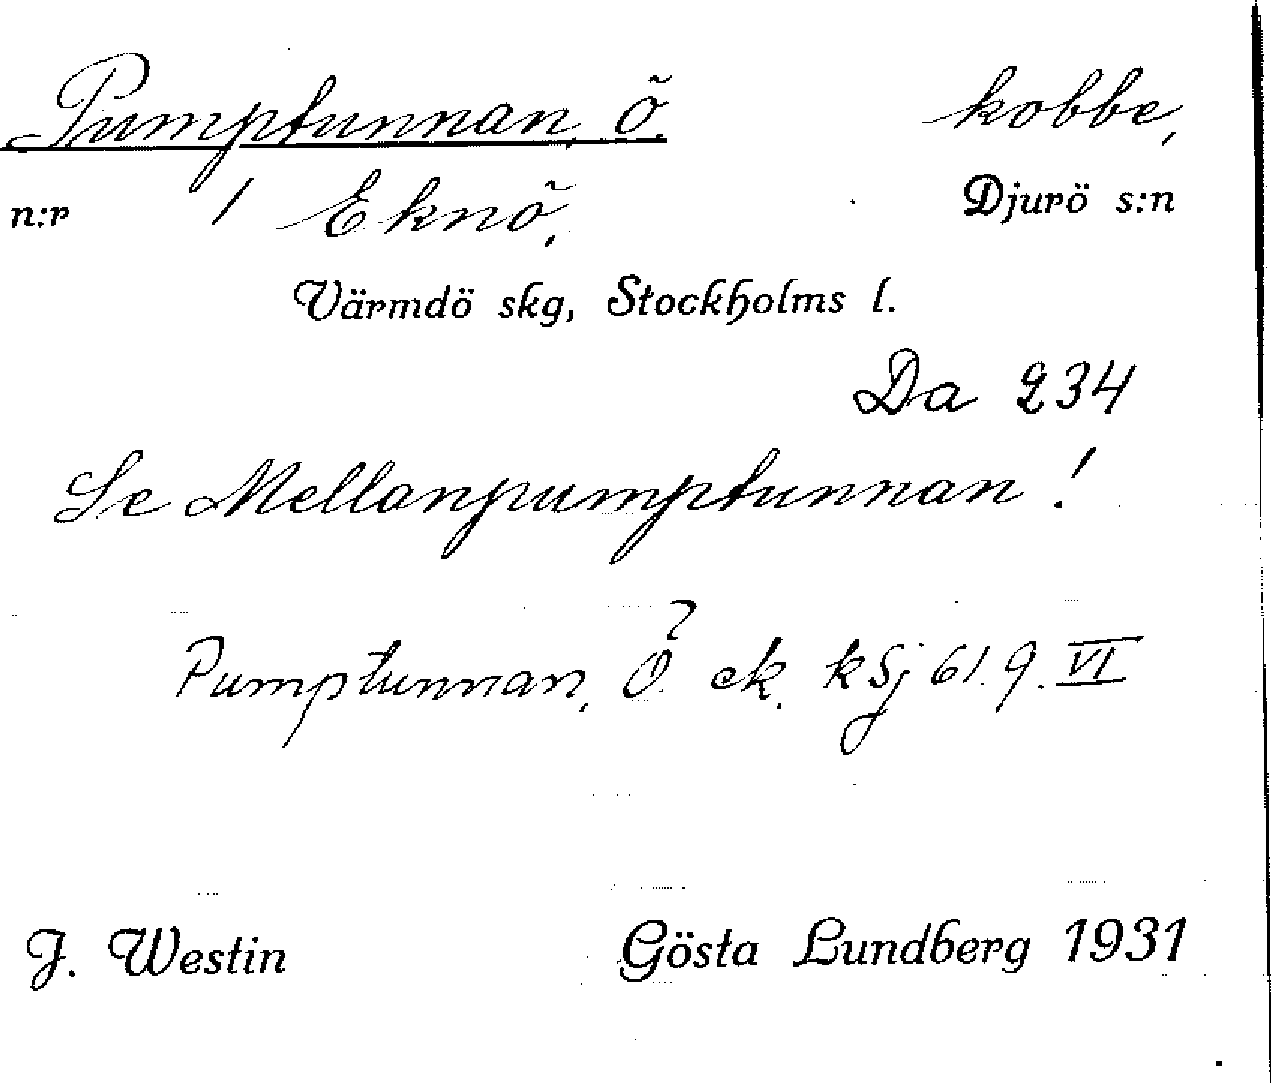 Pumptunnan, Ö. kobbe,
n:r 1 Eknö, Djurö s:n
Värmdö skg, Stockholms l.
Da 234
Se Mellanpumptunnan!
Pumptunnan, Ö. ek. kSj 61. 9. VI
J. Westin Gösta Lundberg 1931